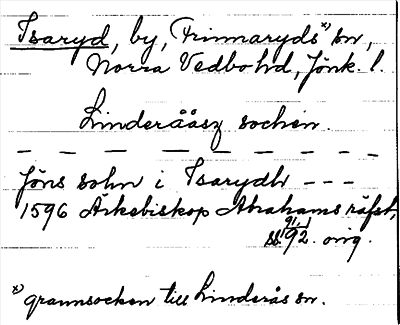 Isaryd, by, Frinnaryds *) sn,
Norra Vedbo hd, Jönk. l.
Linderååsz sochen.
— — — — — — — — —
Jöns sohn i Isarydh - - -
1596 Ärkebiskop Abrahams räfst,
s. 91, 92. orig.
*) grannsocken till Linderås sn.